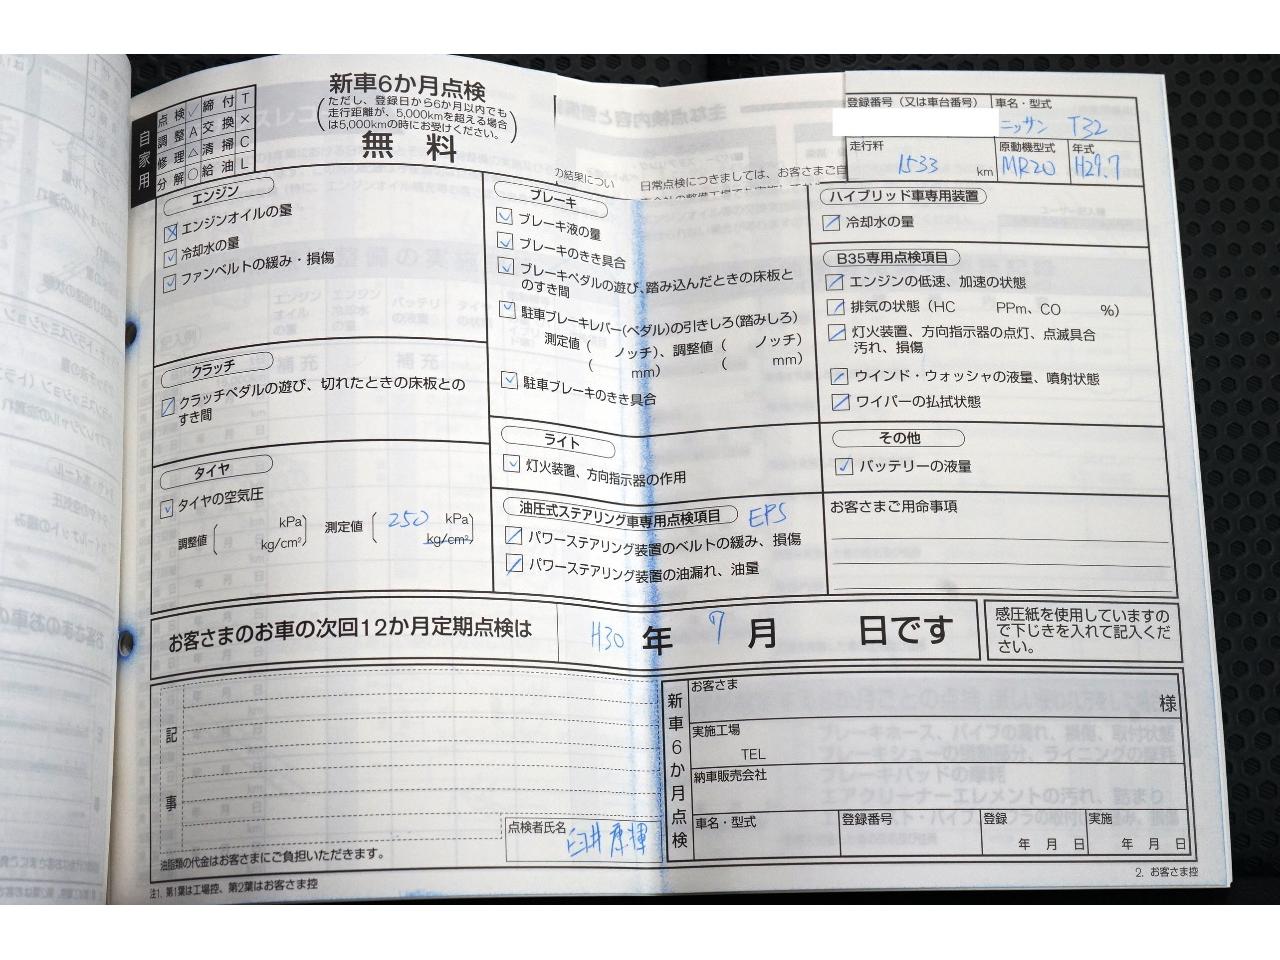 新車6か月点検
(ただし、登録日から6か月以内でも
走行距離が、5,000kmを超える場合
は5,000kmの時にお受けください。)
無 料
自家用
点検 ✓ 締付 T
調整 A 交換 ×
修理 △ 清掃 C
分解 ○ 給油 L
登録番号(又は車台番号)
車名・型式
ニッサン T32
走行粁
1533 km
原動機型式
MR20
年式
H29.7
の結果につい
日常点検につきましては、お客さまご自
エンジン
エンジンオイルの量
冷却水の量
ファンベルトの緩み・損傷
クラッチ
クラッチペダルの遊び、切れたときの床板との
すき間
タイヤ
タイヤの空気圧
調整値 ( kPa kg/cm² ) 測定値 ( 250 kPa kg/cm² )
ブレーキ
ブレーキ液の量
ブレーキのきき具合
ブレーキペダルの遊び、踏み込んだときの床板と
のすき間
駐車ブレーキレバー(ペダル)の引きしろ(踏みしろ)
測定値( ノッチ)、調整値( ノッチ)
( mm) ( mm)
駐車ブレーキのきき具合
ライト
灯火装置、方向指示器の作用
油圧式ステアリング車専用点検項目 EPS
パワーステアリング装置のベルトの緩み、損傷
パワーステアリング装置の油漏れ、油量
ハイブリッド車専用装置
冷却水の量
B35専用点検項目
エンジンの低速、加速の状態
排気の状態(HC PPm、CO %)
灯火装置、方向指示器の点灯、点滅具合
汚れ、損傷
ウインド・ウォッシャの液量、噴射状態
ワイパーの払拭状態
その他
バッテリーの液量
お客さまご用命事項
お客さまのお車の次回12か月定期点検は H30 年 7 月 日です
感圧紙を使用していますの
で下じきを入れて記入くだ
さい。
記事
油脂類の代金はお客さまにご負担いただきます。
点検者氏名
臼井 康輝
新車6か月点検
お客さま 様
実施工場
TEL
納車販売会社
車名・型式
登録番号
登録 年 月 日
実施 年 月 日
注1. 第1葉は工場控、第2葉はお客さま控
2. お客さま控